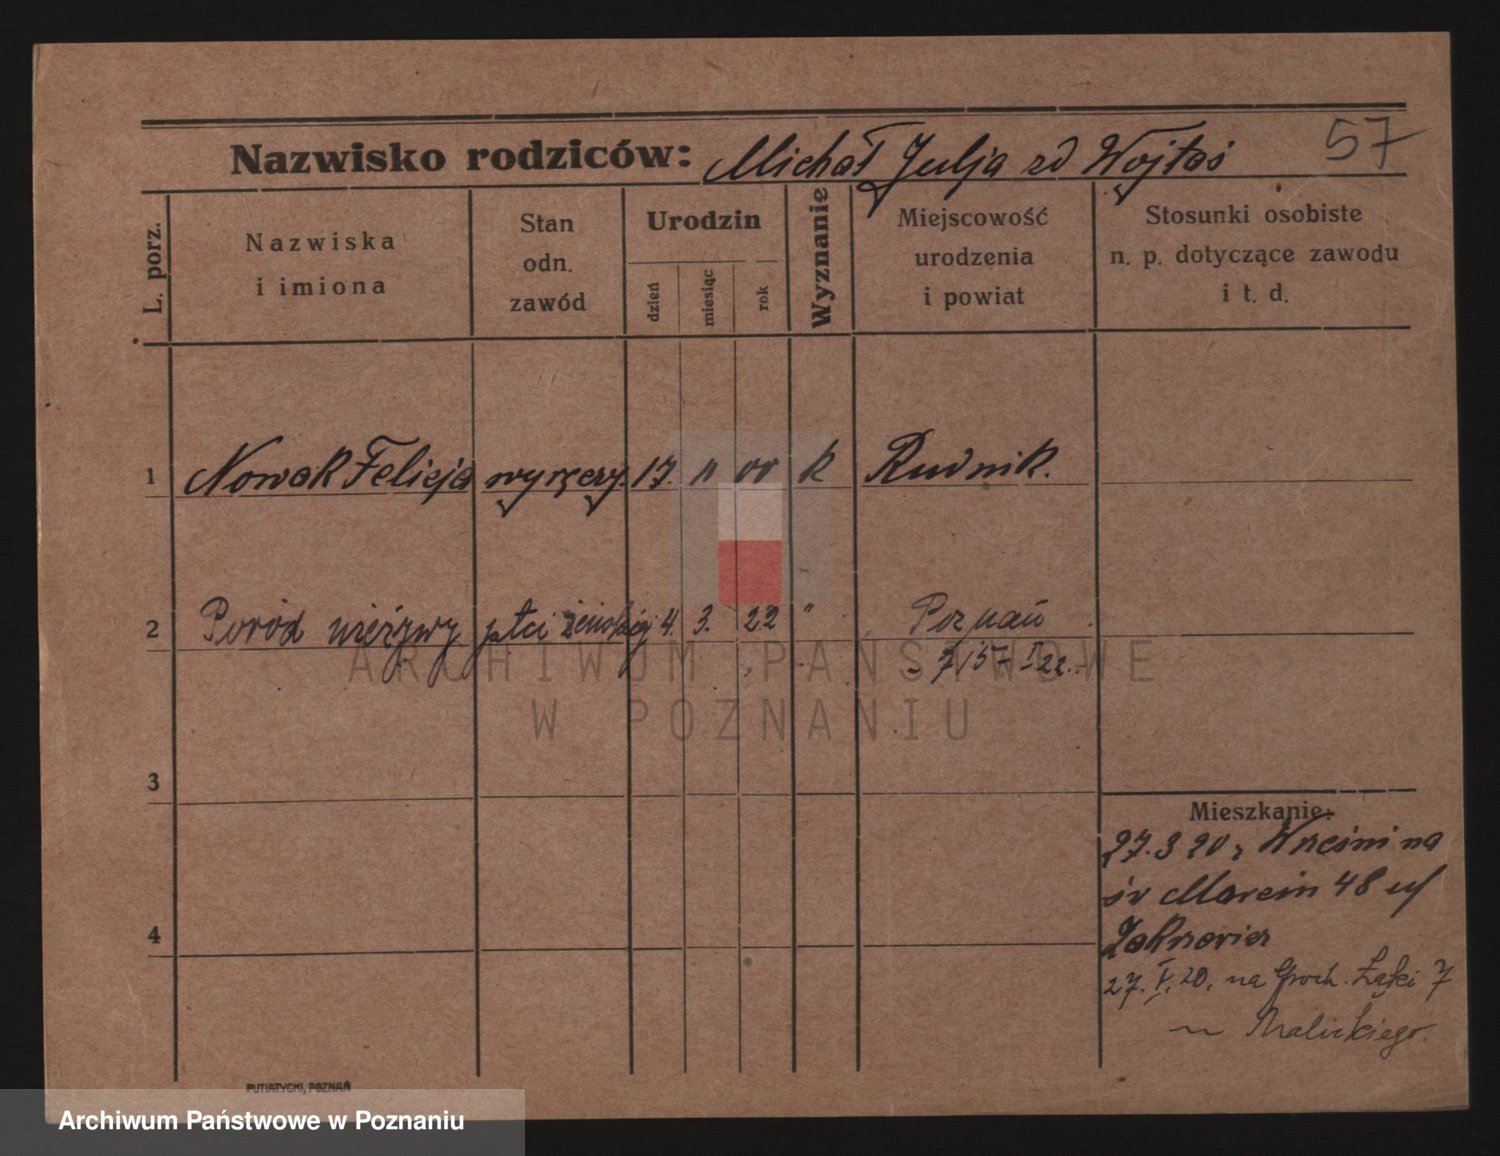 57
Nazwisko rodziców: Michał Julja zd Wojtaś
L. porz.
Nazwiska
i imiona
Stan
odn.
zawód
Urodzin
dzień
miesiąc
rok
Wyznanie
Miejscowość
urodzenia
i powiat
Stosunki osobiste
n. p. dotyczące zawodu
i t. d.
1 Nowak Felicja 17. 11 00 k Rudnik.
2 Poród nieżywy płci żeńskiej 4. 3. 22 " Poznań
3
4
Mieszkanie:
27.3 20 z Wrześni na
św Marcin 48 u/
27. V. 20. na Groch. Łąki 7
Malickiego.
PUTIATYCKI, POZNAŃ
ARCHIWUM PAŃSTWOWE
W POZNANIU
Archiwum Państwowe w Poznaniu